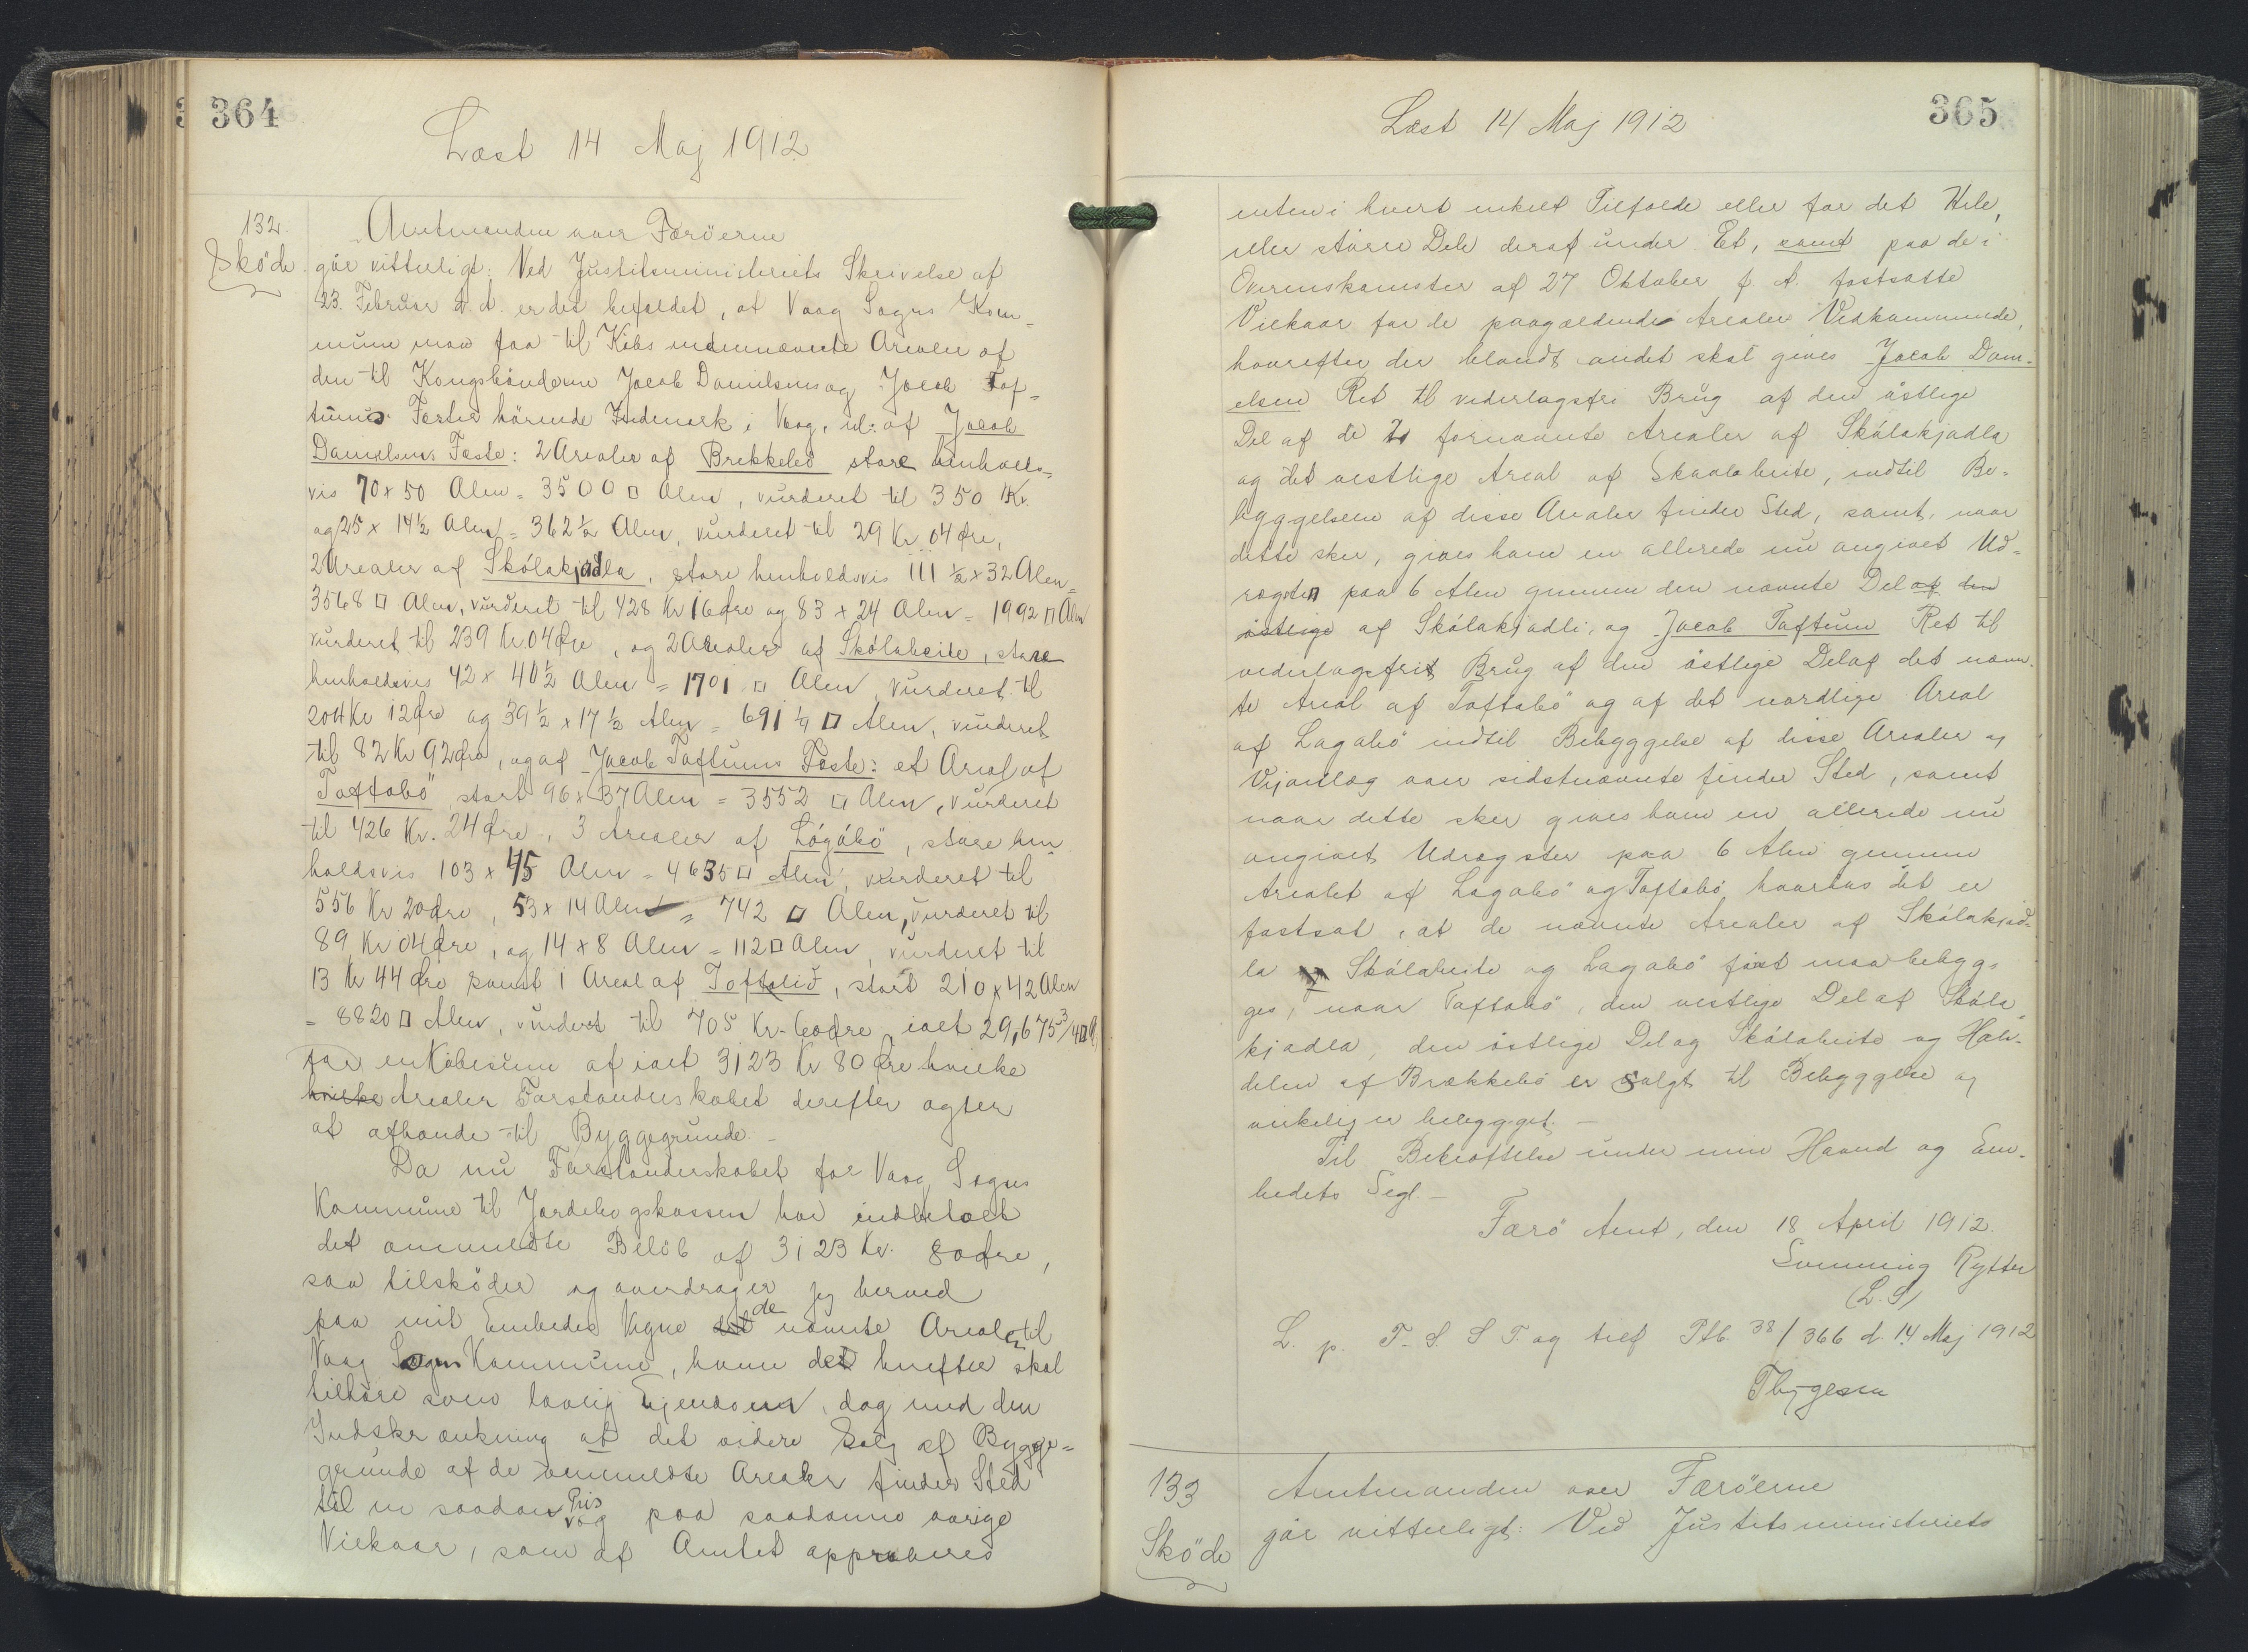 364
Læst 14 Maj 1912
132.
Sköde.
Amtmanden over Færöerne
gör vitterligt: Ved Justitsministeriets Skrivelse af
23. Februar d. A. er det bifaldet, at Vaag Sogns Kom=
mune maa faa til Köbs nedennævnte Arealer af
den til Kongsbönderne Jacob Danielsens og Jacob Tof=
tums Fæster hörende Indmark i Vaag, nl: af Jacob
Danielsens Fæste: 2 Arealer af Brekkebö store henholds=
vis 70 x 50 Alen = 3500 □ Alen, vurderet til 350 Kr.
og 25 x 14½ Alen = 362½ Alen, vurderet til 29 Kr 04 Øre,
2 Arealer af Skólakjadla, store henholdsvis 111½ x 32 Alen =
3568 □ Alen, vurderet til 428 Kr 16 Øre og 83 x 24 Alen = 1992 □ Alen
vurderet til 239 Kr. 04 Øre, og 2 Arealer af Skólabeite, store
henholdsvis 42 x 40½ Alen = 1701 □ Alen, vurderet til
204 Kr 12 Øre og 39½ x 17½ Alen = 691¼ □ Alen, vurderet
til 82 Kr 92 Øre, og af Jacob Toftums Fæste: et Areal af
Toftabö, stort 96 x 37 Alen = 3552 □ Alen, vurderet
til 426 Kr. 24 Øre, 3 Arealer af Lágabö, store hen
holdsvis 103 x 45 Alen = 4635 □ Alen, vurderet til
556 Kr 20 Øre, 53 x 14 Alen = 742 □ Alen, vurderet til
89 Kr 04 Øre, og 14 x 8 Alen = 112 □ Alen, vurderet til
13 Kr 44 Øre samt 1 Areal af Toftalið, stort 210 x 42 Alen
= 8820 □ Alen, vurderet til 705 Kr. 60 Øre, ialt 29,675 3/4 □ A,
for en Köbesum af ialt 3123 Kr 80 Øre hvilke
hvilke Arealer Forstanderskabet derefter agter
at afhænde til Byggegrunde. –
Da nu Forstanderskabet for Vaag Sogns
Kommune til Jordebogskassen har indbetalt
det anmeldte Belöb af 3123 Kr. 80 Øre,
saa tilsköder og overdrager jeg herved
paa mit Embedes Vegne det de nævnte Arealer til
Vaag Sogns Kommune, hvem det herefter skal
tilhöre som lovlig Ejendom, dog med den
Indskrænkning at det videre Salg af Bygge=
grunde af de anmeldte Arealer finder Sted
til en saadan Pris og paa saadanne övrige
Vilkaar, som af Amtet approberes
365
Læst 14 Maj 1912
enten i hvert enkelt Tilfælde eller for det Hele,
eller större Dele deraf under Et, samt paa de i
Overenskomster af 27 Oktober f. A. fastsatte
Vilkaar for de paagældende Arealers Vedkommende,
hvorefter der blandt andet skal gives Jacob Dani-
elsen Ret til vederlagsfri Brug af den östlige
Del af de 2 fornævnte Arealer af Skólakjadla
og det vestlige Areal af Skaalabeite, indtil Be=
byggelsen af disse Arealer finder Sted, samt, naar
dette sker, gives ham en allerede nu angivet Ud=
rögster paa 6 Alen gennem den nævnte Del af den
östlige af Skólakjadli, og Jacob Toftum Ret til
vederlagsfrit Brug af den östlige Del af det nævn-
te Areal af Toftabö og af det nordlige Areal
af Lagabö indtil Bebyggelse af disse Arealer og
Vejanlæg over sidstnævnte finder Sted, samt
naar dette sker gives ham en allerede nu
angivet Udrögster paa 6 Alen gennem
Arealet af Lagabö og Toftabö, hvorhos det er
fastsat, at de nævnte Arealer af Skólakjad=
la Skólabeite og Lagabö först maa bebyg=
ges, naar Toftabö, den vestlige Del af Skóla=
kjadla, den östlige Del af Skólabeite og Halv-
delen af Brækkebö er solgt til Bebyggelse og
virkelig er bebygget. –
Til Bekræftelse under min Haand og Em-
bedets Segl. –
Færö Amt, den 18 April 1912.
Svenning Rytter
(L. S)
L. p. T. S. S T. og tilf Ptb. 38/366 d. 14 Maj 1912
Thygesen
133
Sköde
Amtmanden over Færöerne
gör vitterligt: Ved Justitsministeriets